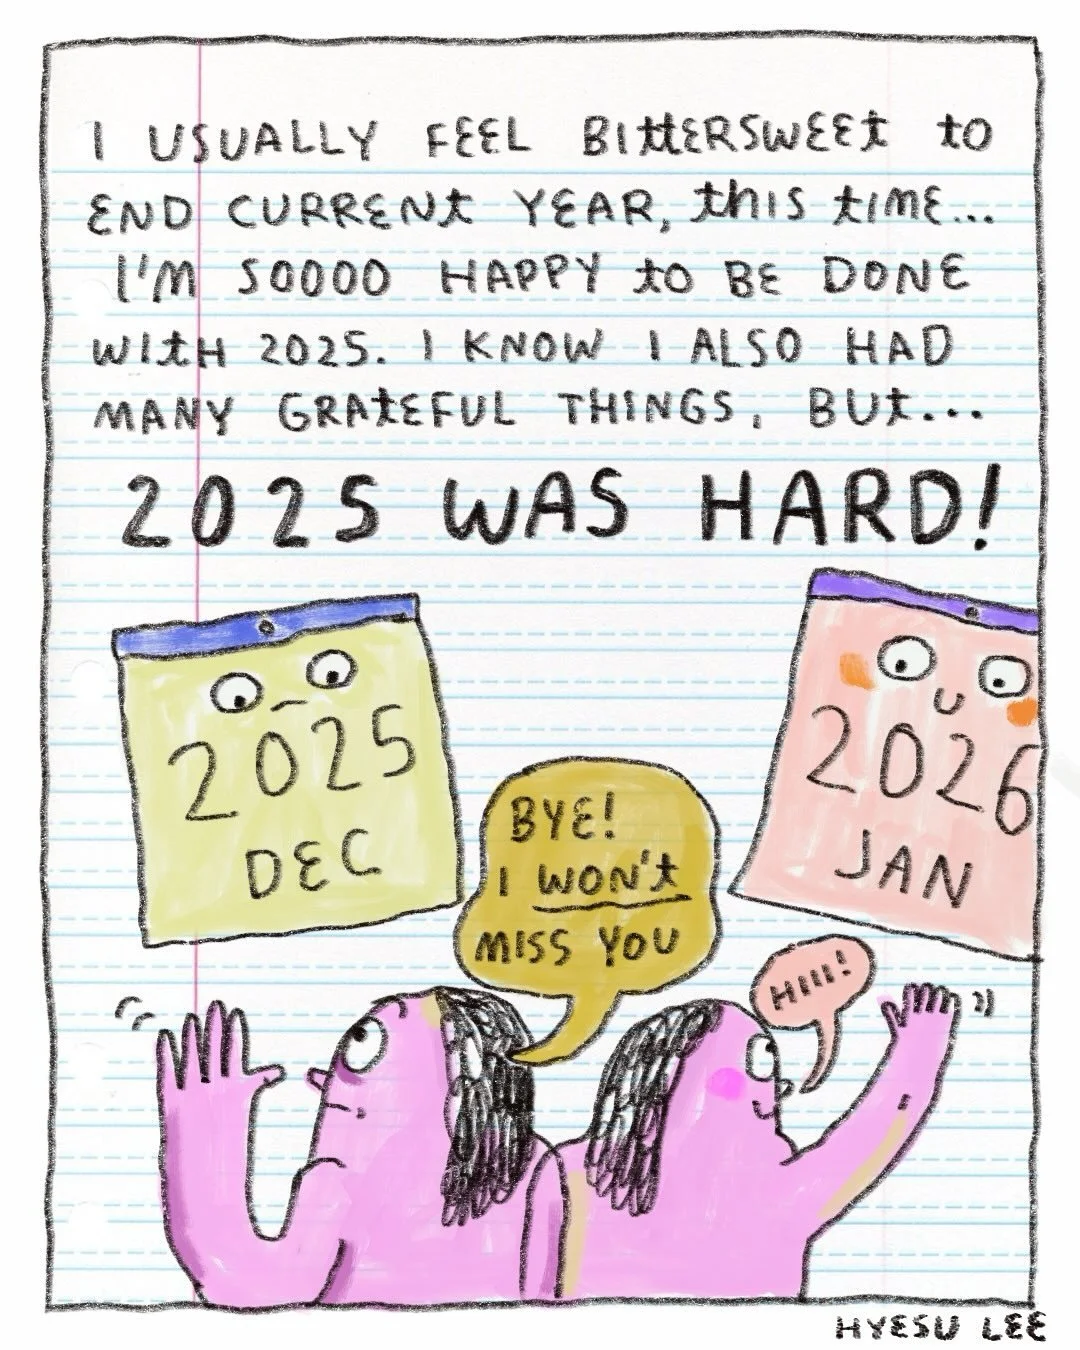 I USUALLY FEEL BITTERSWEET TO
END CURRENT YEAR, THIS TIME...
I'M SOOOO HAPPY TO BE DONE
WITH 2025. I KNOW I ALSO HAD
MANY GRATEFUL THINGS, BUT...
2025 WAS HARD!
2025
DEC
2026
JAN
BYE!
I WON'T
MISS YOU
HIIII!
HYESU LEE